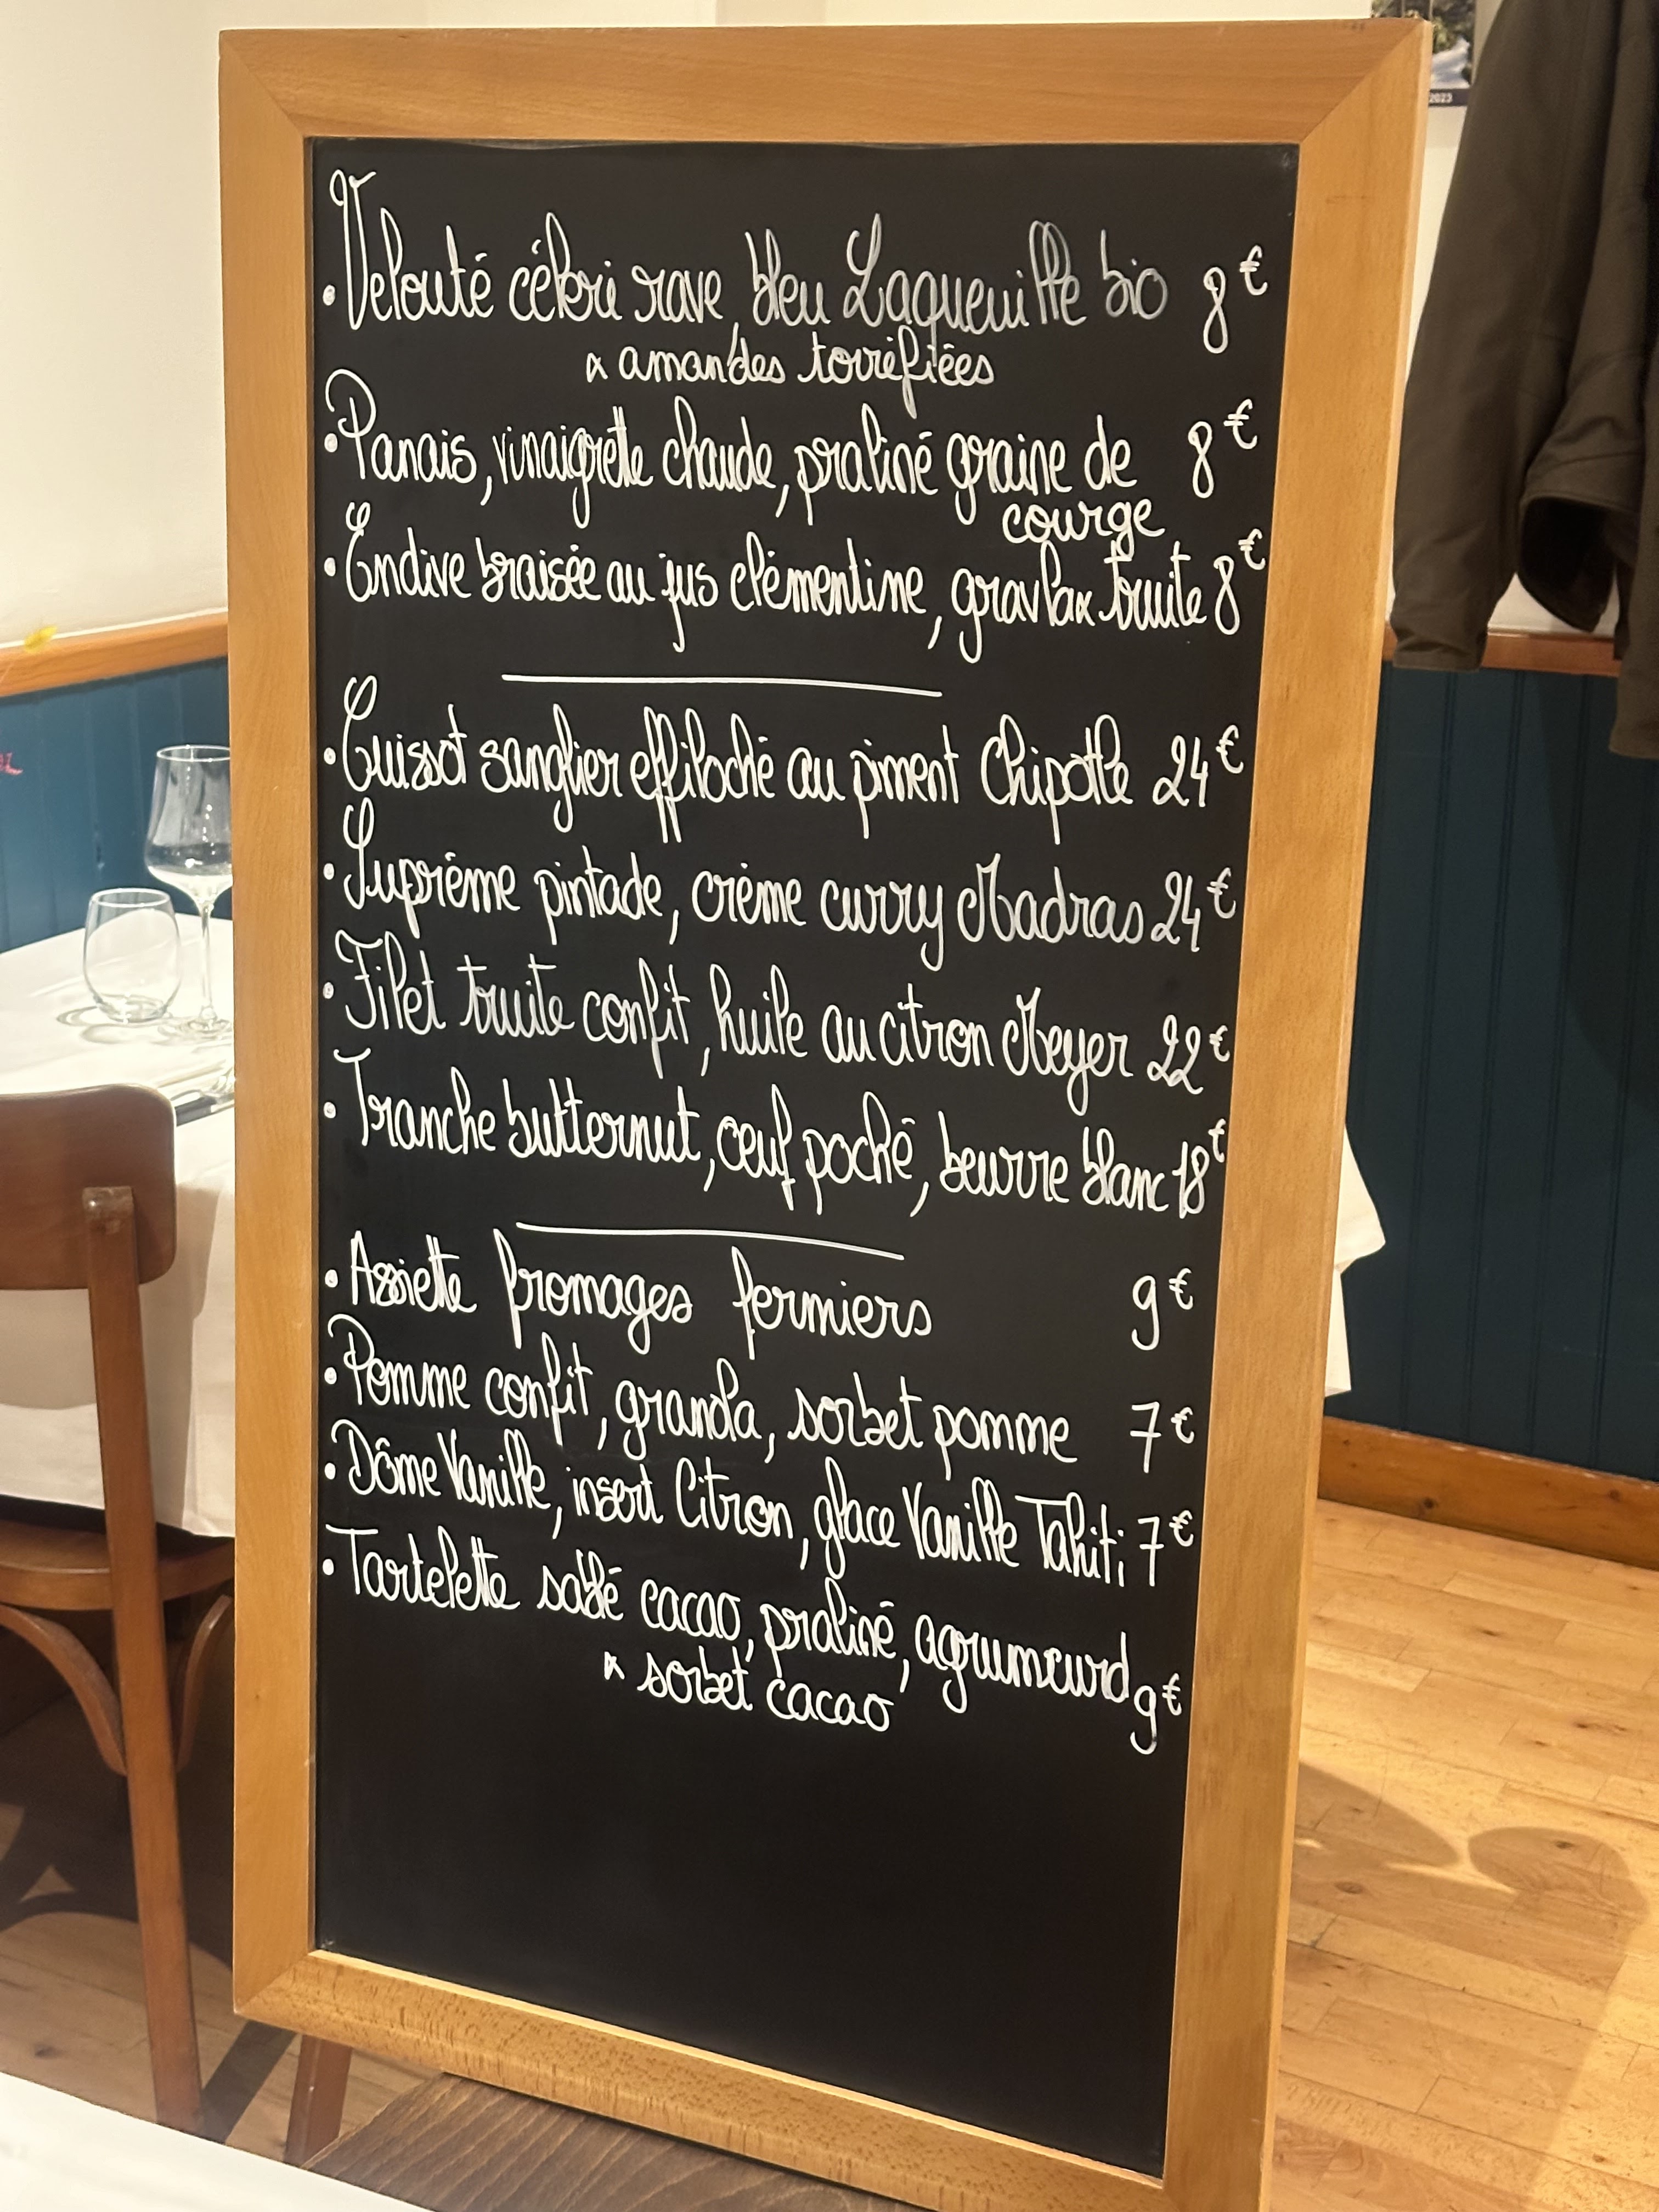 • Velouté céleri rave, bleu Laqueuille bio 8€
& amandes torréfiées
• Panais, vinaigrette chaude, praliné graine de 8€
courge
• Endive braisée au jus clémentine, gravlax truite 8€
• Cuissot sanglier effiloché au piment Chipotle 24€
• Suprême pintade, crème curry Madras 24€
• Filet truite confit, huile au citron Meyer 22€
• Tranche butternut, œuf poché, beurre blanc 18€
• Assiette fromages fermiers 9€
• Pomme confit, granola, sorbet pomme 7€
• Dôme Vanille, insert Citron, glace Vanille Tahiti 7€
• Tartelette sablé cacao, praliné, agrumcurd 9€
& sorbet cacao
2023